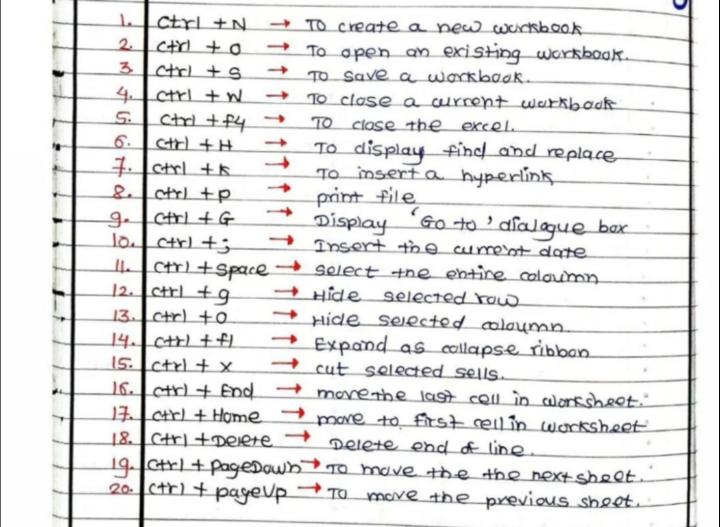 1. Ctrl + N → To create a new workbook
2. Ctrl + O → To open an existing workbook.
3 Ctrl + S → To save a workbook.
4. Ctrl + W → To close a current workbook
5. Ctrl + f4 → To close the excel.
6. Ctrl + H → To display find and replace
7. Ctrl + K → To insert a hyperlink
8. Ctrl + P → print file
9. Ctrl + G → Display 'Go to' dialogue box
10. Ctrl + ; → Insert the current date
11. Ctrl + Space → select the entire coloumn
12. Ctrl + 9 → Hide selected row
13. Ctrl + 0 → Hide selected coloumn.
14. Ctrl + f1 → Expand as collapse ribbon
15. Ctrl + x → cut selected sells.
16. Ctrl + End → move the last cell in worksheet.
17. Ctrl + Home → move to first cell in worksheet
18. Ctrl + Delete → Delete end of line.
19. Ctrl + pageDown → To move the the next sheet.
20. Ctrl + pageUp → To move the previous sheet.